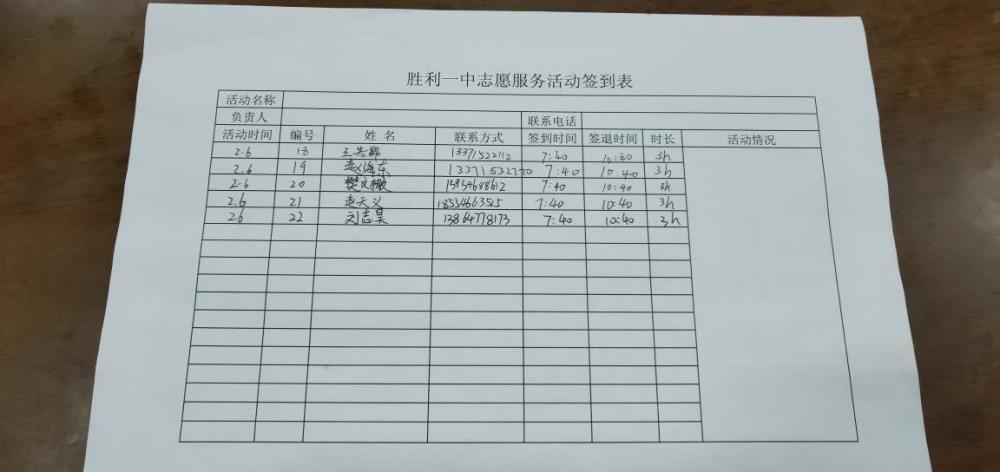 胜利一中志愿服务活动签到表
活动名称
负责人 联系电话
活动时间 编号 姓名 联系方式 签到时间 签退时间 时长 活动情况
2.6 18 王 13371522112 7:40 10:40 3h
2.6 19 赵 东 7:40 10:40 3h
2.6 20 樊文 15954688612 7:40 10:40 3h
2.6 21 赵天义 7:40 10:40 3h
2.6 22 刘志昊 13864778173 7:40 10:40 3h